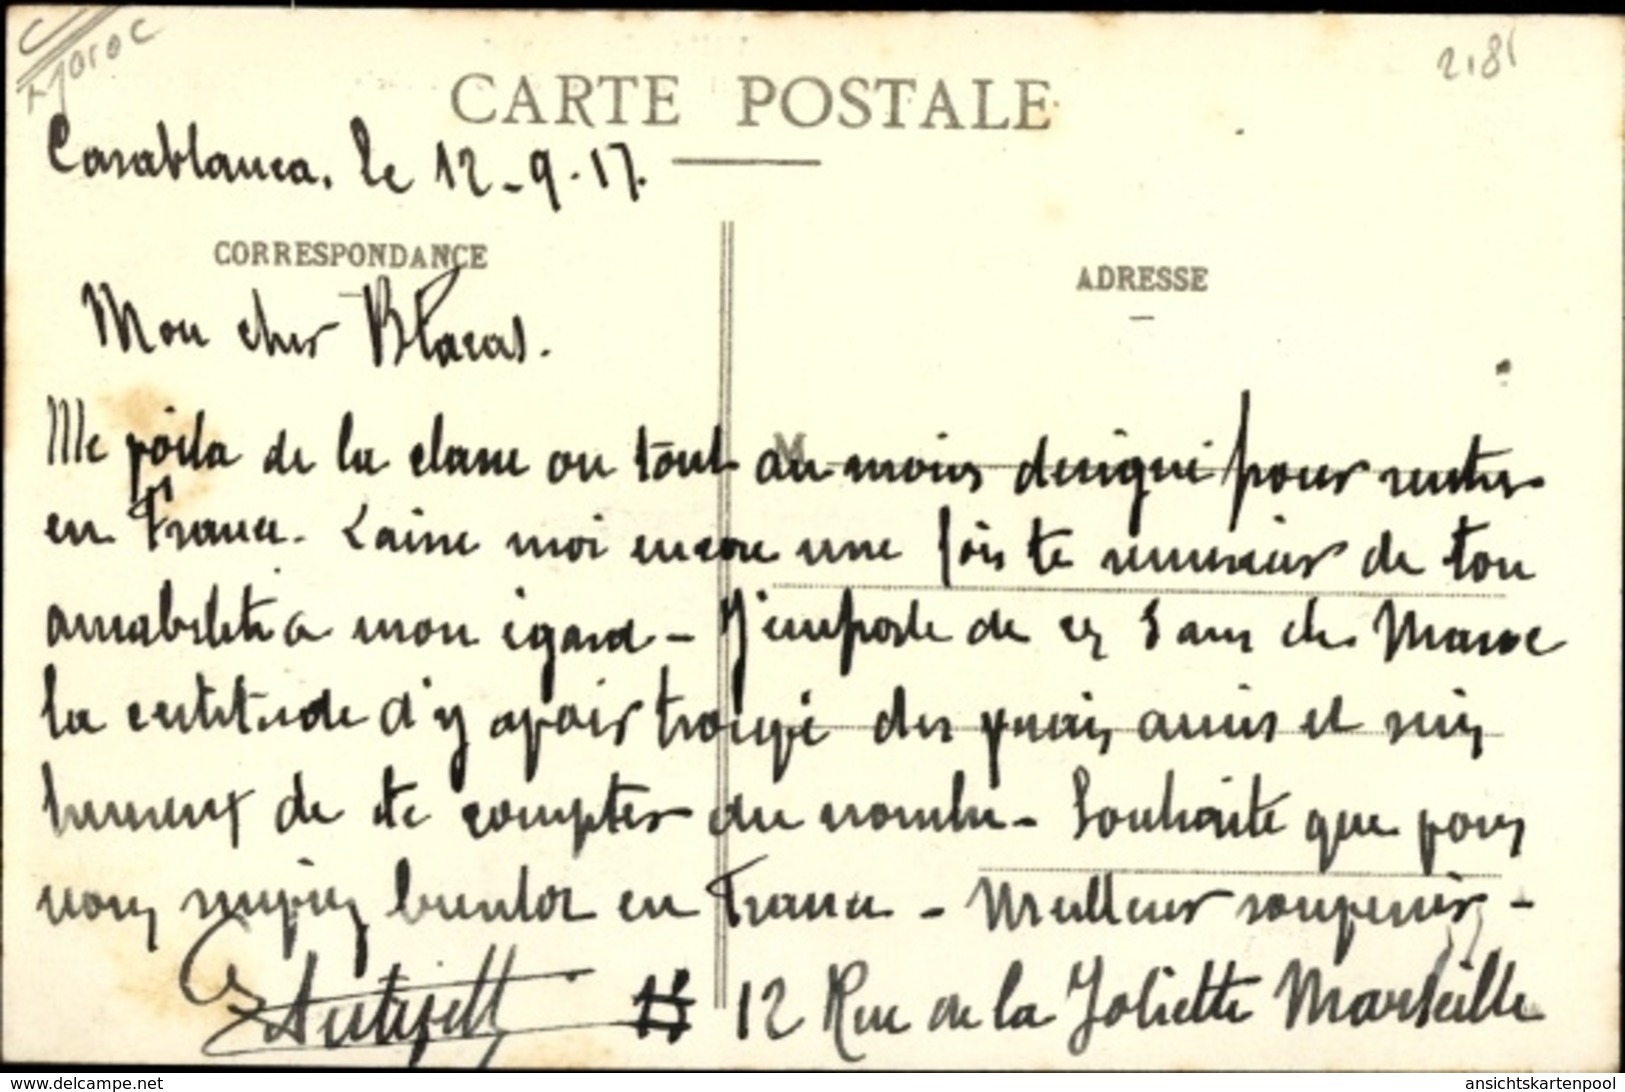 Maroc
2,8
CARTE POSTALE
Casablanca. le 12-9-17.
CORRESPONDANCE
ADRESSE
Mon cher Blacas.
M
Me voila de la classe ou tout au moins designé pour rester
en France. Laisse moi encore une fois te remercier de ton
amabilité a mon égard - J'emporte de ces 3 ans de Maroc
la certitude d'y avoir trouvé des vrais amis et suis
heureux de te compter au nombre - Souhaite que vous
nous suiviez bientot en France - Meilleurs souvenirs -
12 Rue de la Joliette Marseille
www.delcampe.net
ansichtskartenpool